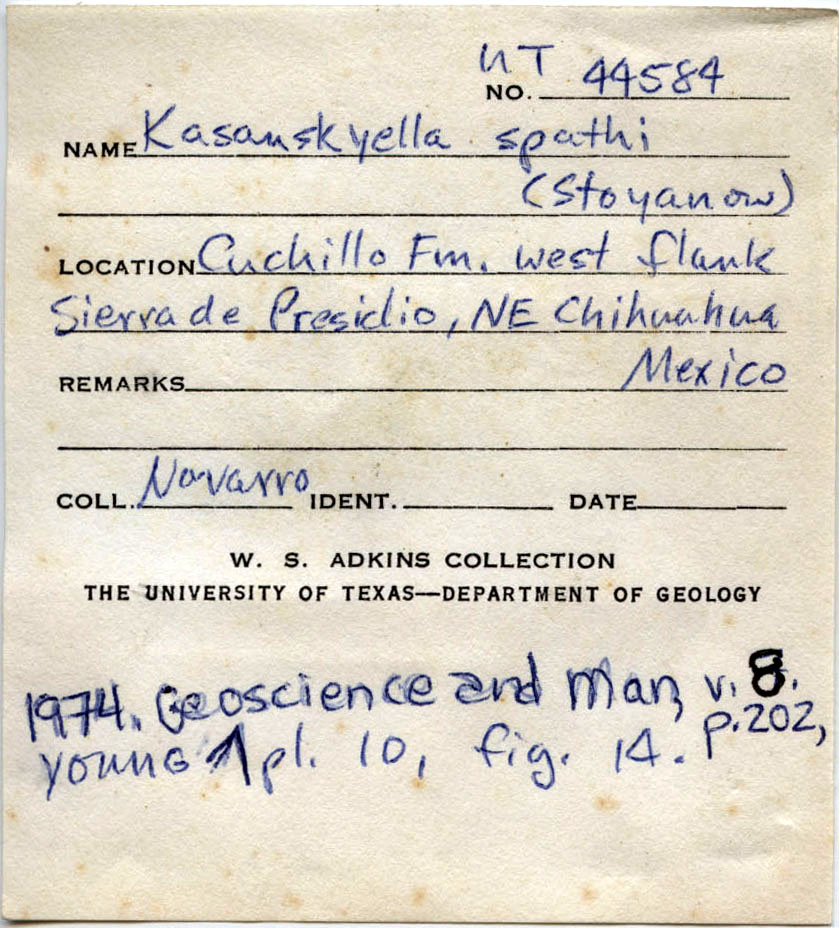 UT
NO. 44584
NAME Kasanskyella spathi
(Stoyanow)
LOCATION Cuchillo Fm. west flank
Sierra de Presidio, NE Chihuahua
Mexico
REMARKS
COLL. Navarro IDENT. DATE
W. S. ADKINS COLLECTION
THE UNIVERSITY OF TEXAS—DEPARTMENT OF GEOLOGY
1974. Geoscience and Man, v. 8.
p.202,
YOUNG pl. 10, fig. 14.